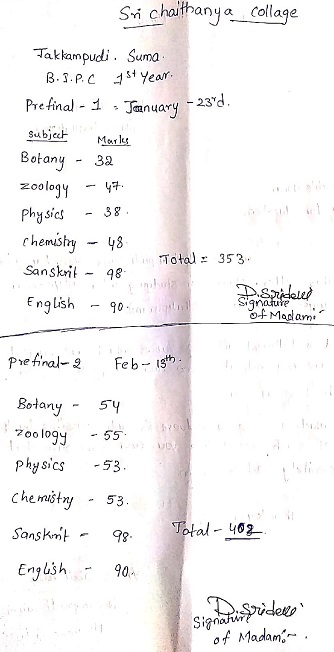 Sri chaithanya collage
Jakkampudi. Suma.
B.I.P.C 1st Year.
Prefinal - 1 = January - 23rd.
Subject Marks
Botany - 32
zoology - 47.
physics - 38.
chemistry - 48
Total = 353.
Sanskrit - 98
English - 90.
D.Sridevi
Signature
of Madam:-
prefinal-2 Feb-13th.
Botany - 54
zoology - 55.
physics - 53.
chemistry - 53.
Sanskrit - 98. Total - 403
English - 90.
D.Sridevi
Signature
of Madam:-.